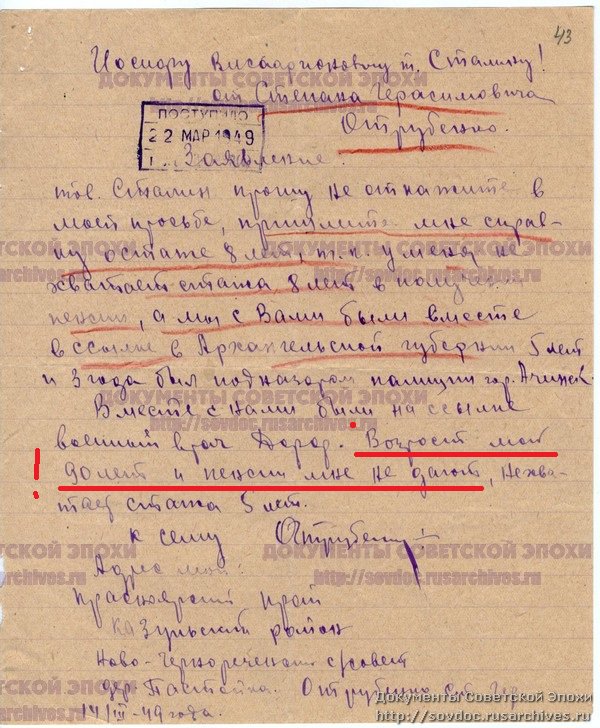 43
Иосифу Висаарионовичу т. Сталину!
от Степана Герасимовича
Отрубенко.
ПОСТУПИЛО
22 МАР 1949
Заявление.
тов. Сталин прошу не откажите в
моей просьбе, пришлите мне справ-
ку остаже 8 лет, т.к. у меня не
хватает стажа 8 лет к получе
пенсии, а мы с Вами были вместе
в ссылке в Архангельской губернии 5 лет
и 3 года был поднадзором палиции гор. Ачинск
Вместе с нами были на ссылке
военный врач Возрост мой
90 лет и пенсии мне не дают, Нехва-
тает стажа 5 лет.
к сему Отрубенко
Адрес мой:
Красноярский край
Казульский район
Ново-Чернореченский с/совет
дер. Отрубенко Ст. Гер.
14/III-49 года.
ДОКУМЕНТЫ СОВЕТСКОЙ ЭПОХИ
http://sovdoc.rusarchives.ru
Документы Советской Эпохи
http://sovdoc.rusarchives.ru